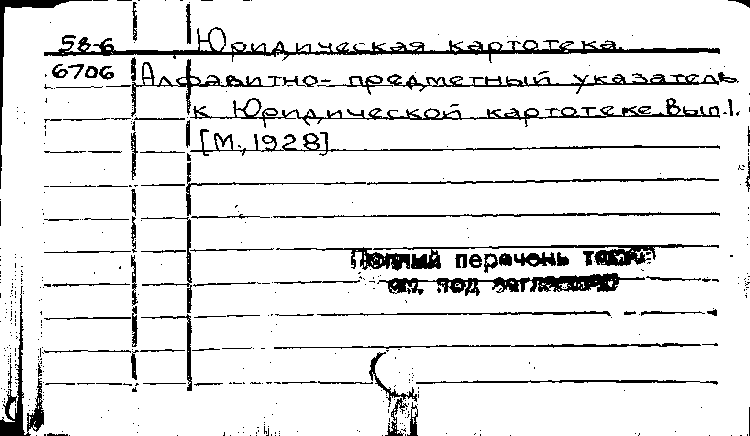 58-6 Юридическая картотека.
6706 Алфавитно-предметный указатель
к Юридической картотеке. Вып.1.
[М., 1928]
Полный перечень
см. под заглавием